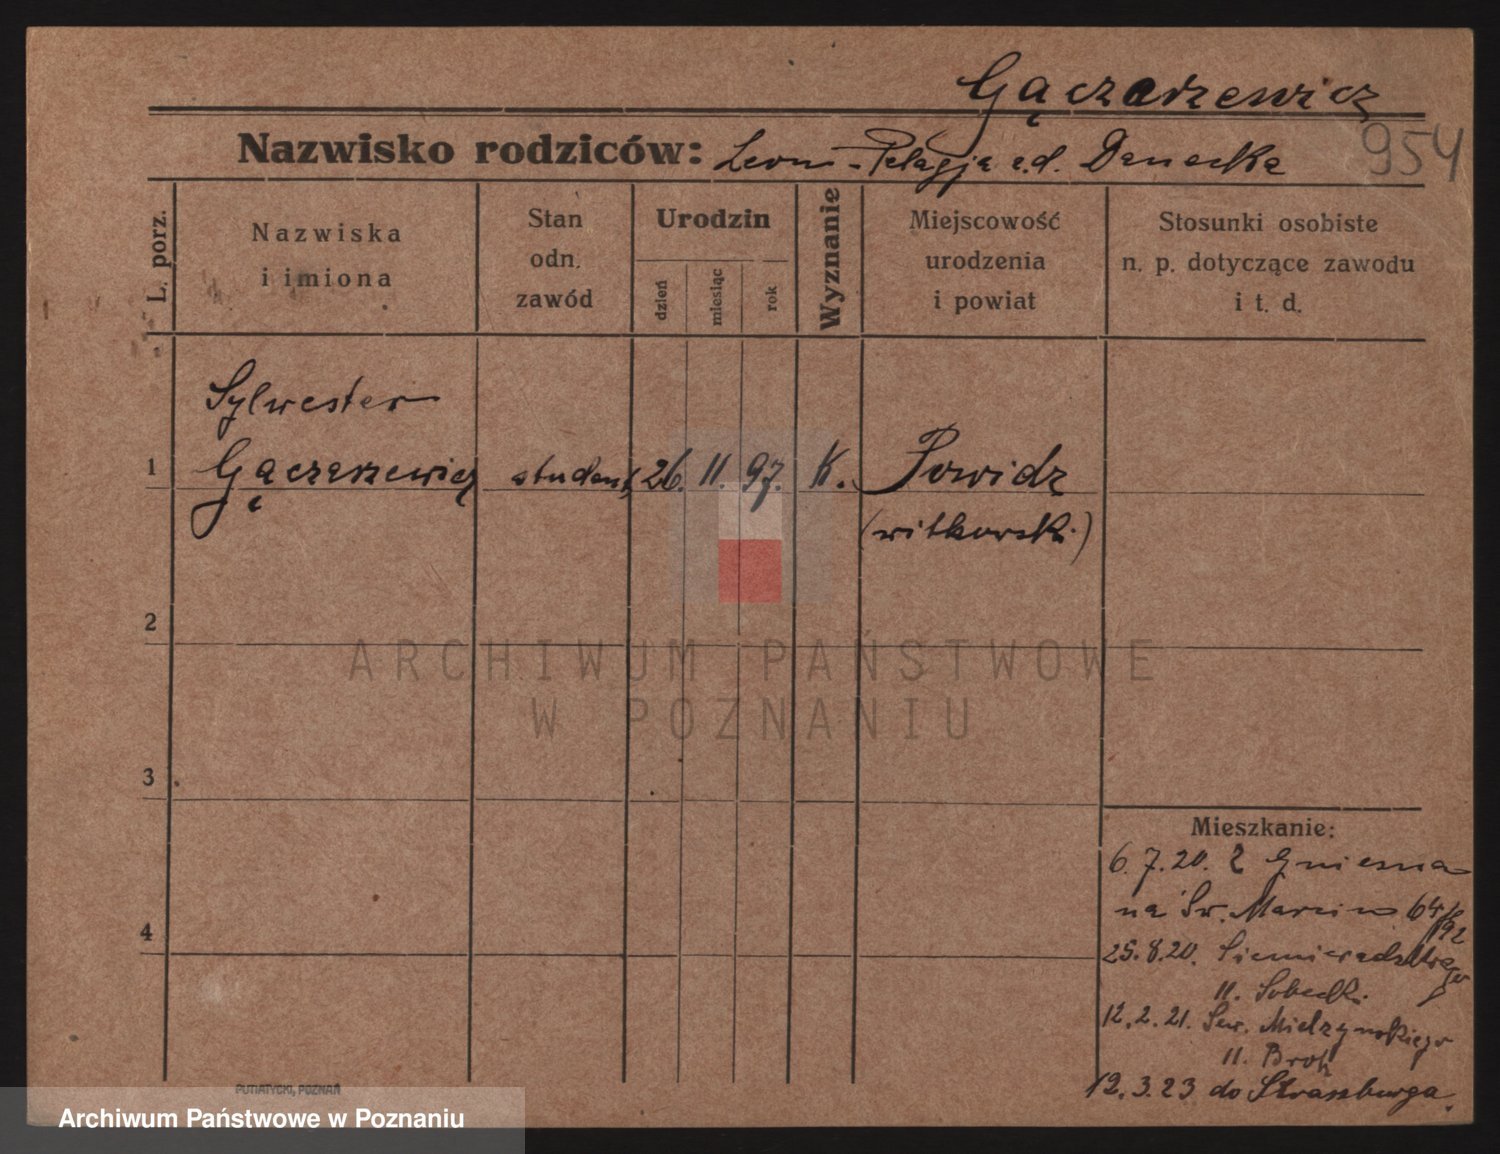 Gączarzewicz
954
Nazwisko rodziców: Leon - Pelagja z.d. Danecka
L. porz.
Nazwiska
i imiona
Stan
odn.
zawód
Urodzin
dzień
miesiąc
rok
Wyznanie
Miejscowość
urodzenia
i powiat
Stosunki osobiste
n. p. dotyczące zawodu
i t. d.
Sylwester
1 Gączarzewicz student 26. 11. 97. K. Powidz
(witkowski)
2
ARCHIWUM PAŃSTWOWE
W POZNANIU
3
Mieszkanie:
6.7.20. z Gniezna
na Św. Marcin 64/
4
25.8.20. Siemieradzkiego
11. Sobecki.
12.2.21. Sew. Mielżyńskiego
11. Broh
12.3.23 do Strassburga.
PUTIATYCKI, POZNAŃ
Archiwum Państwowe w Poznaniu